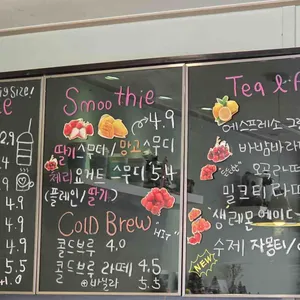 Size/
2.9
4.9
4.9
4.9
5.5
+0.5
Smoothie
4.9
딸기스무디/망고스무디
체리 요거트 스무디 5.4
(플레인/딸기)
COLD BREW
HIT
콜드브루 4.0
콜드브루 라떼 4.5
⊕바닐라 5.5
Tea &
에스프레소 그
바밤바라
오곡라떼
밀크티 라떼
생레몬에이드
수제 자몽티/
NEW